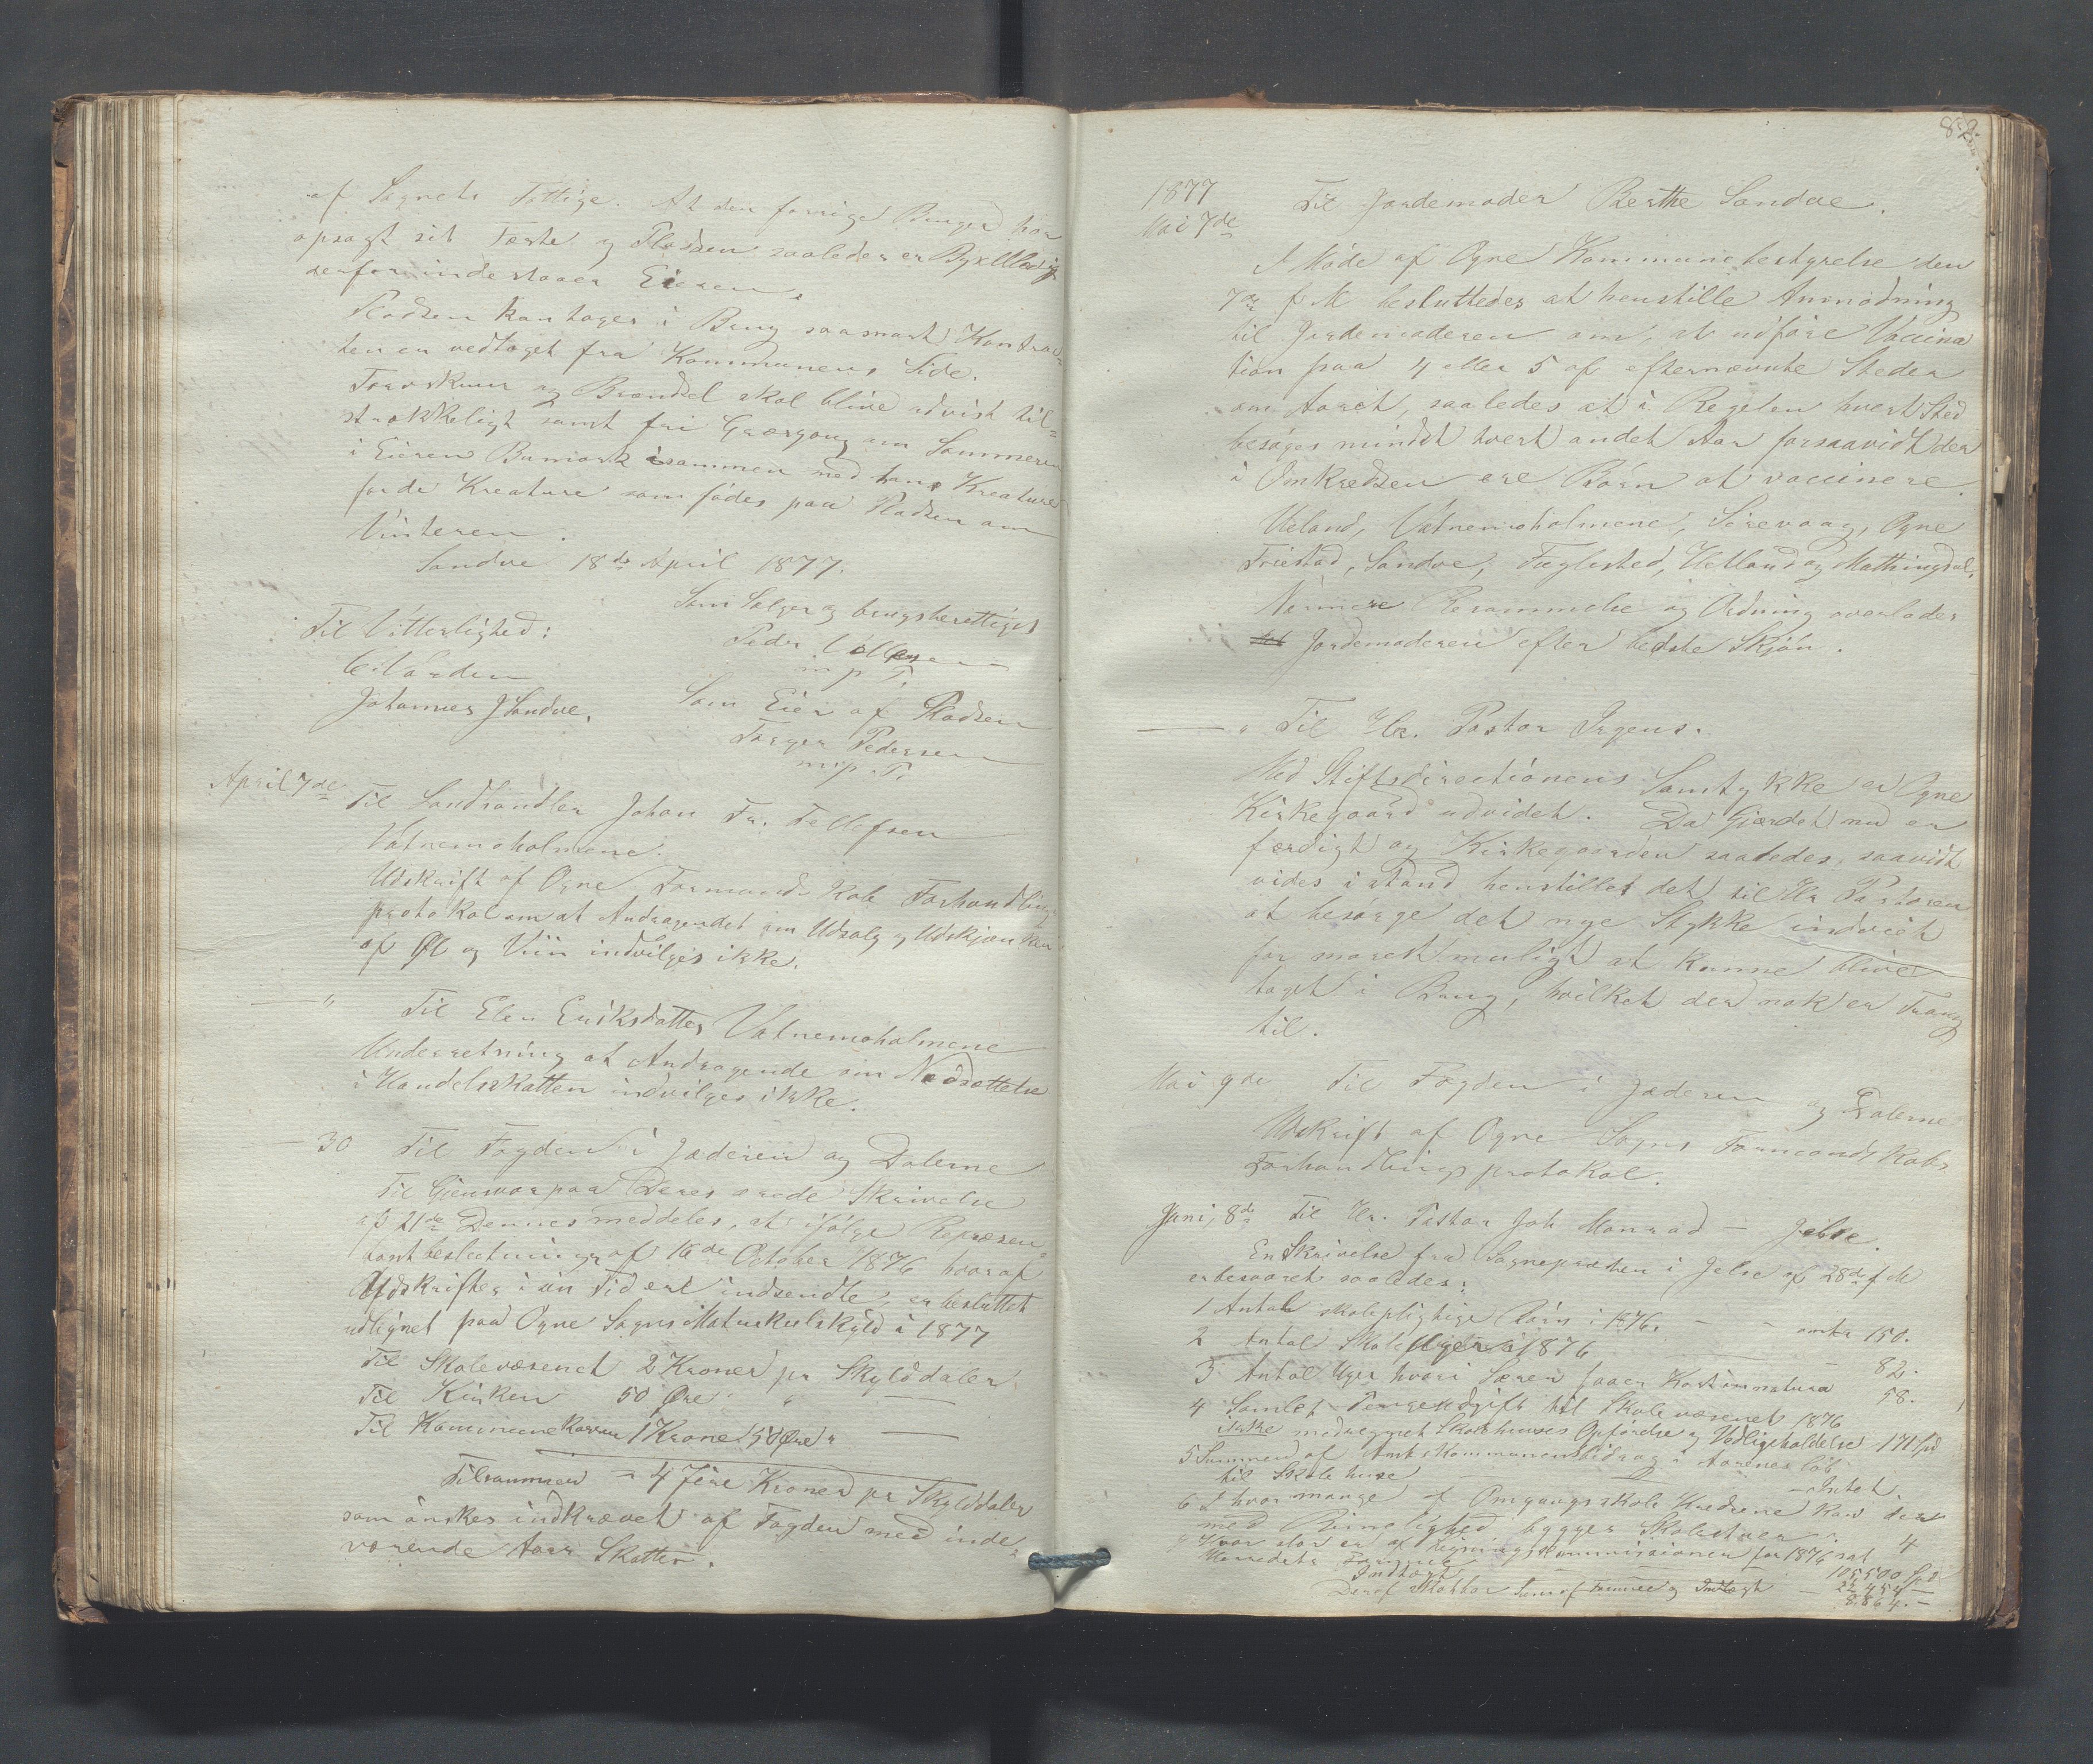 af Sognets Fattige. At den forrige Bruger har
opsagt sit Fæste og Pladsen saaledes er Byxelledig
derfor indestaaer Eieren.
Pladsen kan tages i Brug saasnart Kontrac-
ten er vedtaget fra Kommunens Side.
Torvskuur og Brændsel skal blive udvist til-
strækkeligt samt fri Græsgang om Sommeren
i Eieren Bumark sammen med hans Kreature
for de Kreature som fødes paa Pladsen om
Vinteren.
Sandve 18de April 1877.
Som Sælger og brugsberettiget
Til Vitterlighed:
Peder
m p P.
Johannes J Sandve.
Som Eier af Pladsen
Torger Pedersen
m p P.
April 7de Til Landhandler Johan Fr. Tellefsen
Vatnemoholmene.
Udskrift af Ogne Formandskabs Forhandlings
protokol om at Andragendet om Udsalg og Udskjænken
af Øl og Viin indvilges ikke.
— " Til Elen Eriksdatter Vatnemoholmene
Underretning at Andragende om Nedsættelse
i Handelsskatten indvilges ikke.
— 30 Til Fogden i Jæderen og Dalerne
Til Giensvar paa Deres ærede Skrivelse
af 21de Dennes meddeles, at ifølge Repræsen-
tantbeslutninger af 16de October 1876 hvoraf
Udskrifter i sin Tid ere indsendte, er besluttet
udlignet paa Ogne Sogns Matrikulskyld i 1877
Til Skolevæsenet 2 Kroner pr Skylddaler
Til Kirken 50 Øre " —
Til Kommunekassen 1 Krone 50 Øre " —
Tilsammen = 4 Fire Kroner pr Skylddaler
som ønskes indkrævet af Fogden med inde-
værende Aars Skatter.
82.
1877
Mai 7de Til Jordemoder Berthe Sandve.
I Møde af Ogne Kommunebestyrelse den
7de f M besluttedes at henstille Anmodning
til Jordemoderen om, at udføre Vaccina
tion paa 4 eller 5 af efternævnte Steder
om Aaret, saaledes at i Regelen hvert Sted
besøges mindst hvert andet Aar forsaavidt der
i Omkredsen ere Børn at vaccinere.
Ueland, Vatnemoholmene, Sirevaag, Ogne
Friestad, Sandve, Fuglested, Hetland og Mattingsdal.
Nærmere Bestemmelse og Ordning overlades
Jordemoderen efter bedste Skjøn.
— " Til Hr. Pastor Irgens.
Med Stiftsdirectionens Samtykke er Ogne
Kirkegaard udvidet. Da Gjærdet nu er
færdigt og Kirkegaarden saaledes, saavidt
vides i stand henstilles det til Hr Pastoren
at besørge det nye Stykke indviet
for snarest muligt at kunne blive
taget i Brug, hvilket der nok er Trang
til.
Mai 9de Til Fogden i Jæderen og Dalerne
Udskrift af Ogne Sogns Formandskabs
Forhandlingsprotokol.
Juni, 8de Til Hr. Pastor Joh Monrad — Jelse.
En Skrivelse fra Sognepræsten i Jelse af 28de f M
er besvaret saaledes:
1 Antal skolepligtige Børn i 1876. — — omtr 150.
2 Antal Skoleuger i 1876 — 82.
3 Antal Uger hvori Lærer faaer Kost in natura 58.
4 Samlet Pengeudgift til Skolevæsenet 1876
ikke medregnet Skolehuses Opførelse og Vedligeholdelse 171 Spd
5 Summen af Amtskommunens bidrag i Aarenes løb
til Skolehuse — Intet.
6 I hvor mange af Omgangsskole Kredsene kan der
med Rimelighed bygges Skolestuer. 4
" Hvor stor er af Ligningskommissionen for 1876 sat
Herredets Formue 105,500 Spd
Indtægt 22,454 —
Deraf Skatbar Sum af Formue og Indtægt — 8,864. —